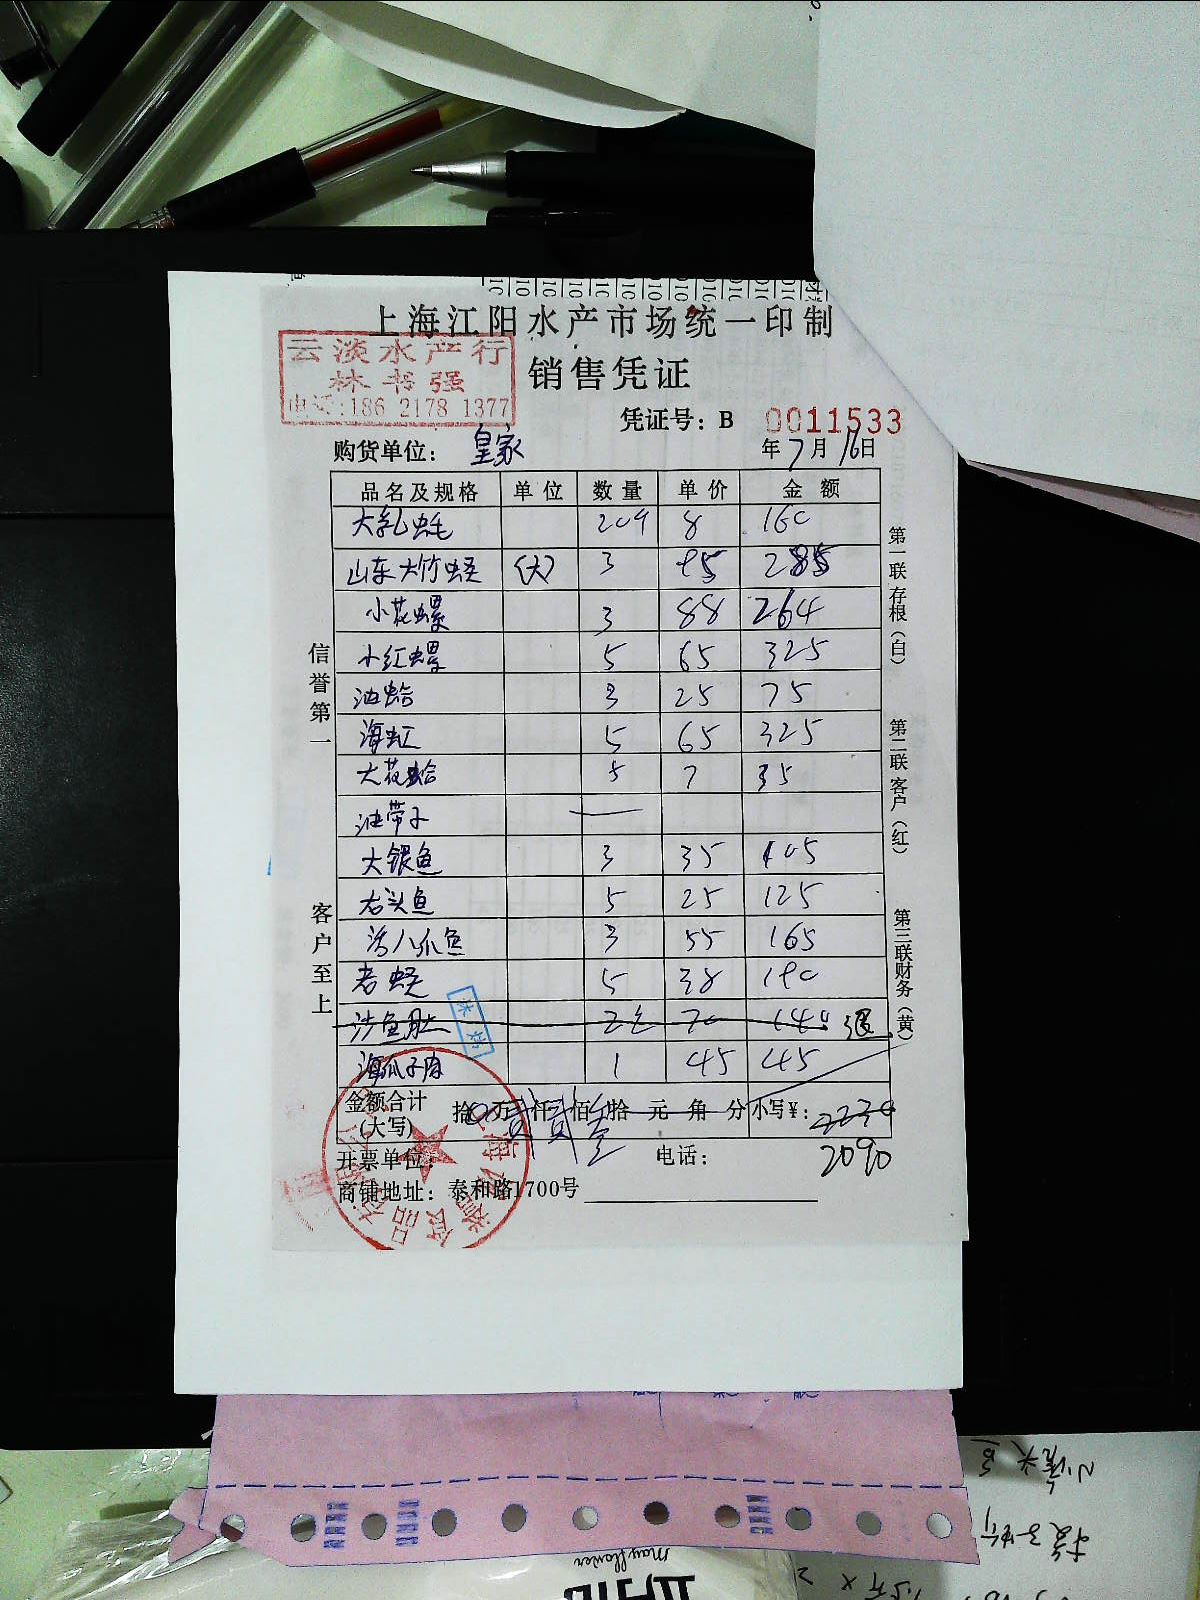 上海江阳水产市场统一印制
云淡水产行
林书强
电话:186 2178 1377
销售凭证
凭证号: B 0011533
购货单位: 皇家 年7月16日
品名及规格 单位 数量 单价 金额
大乳蚝 20个 8 160
山东大竹蛏 (大) 3 95 285
小花螺 3 88 264
小红螺 5 65 325
油蛤 3 25 75
海虹 5 65 325
大花蛤 5 7 35
油带子 —
大银鱼 3 35 105
石头鱼 5 25 125
活八爪鱼 3 55 165
老蛏 5 38 190
沙鱼肚 2包 70 140 退
海瓜子肉 1 45 45
金额合计
(大写) 拾 万 贰 仟 贰 佰 叁 拾 元 角 分 小写¥: 2230
2090
开票单位: 电话:
商铺地址: 泰和路1700号
信誉第一
客户至上
第一联存根(白)
第二联客户(红)
第三联财务(黄)
Mayflower